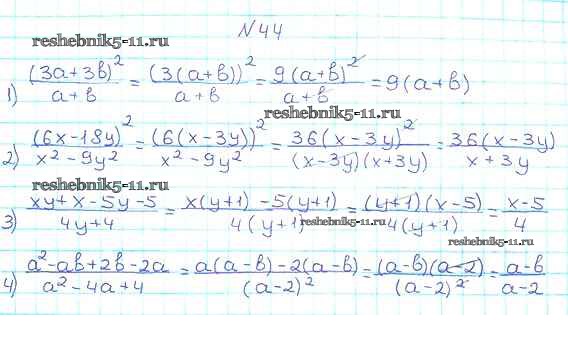 N44
reshebnik5-11.ru
1) (3a+3b)²/(a+b) = (3(a+b))²/(a+b) = 9(a+b)²/(a+b) = 9(a+b)
reshebnik5-11.ru
2) (6x-18y)²/(x²-9y²) = (6(x-3y))²/(x²-9y²) = 36(x-3y)²/((x-3y)(x+3y)) = 36(x-3y)/(x+3y)
reshebnik5-11.ru
3) (xy+x-5y-5)/(4y+4) = (x(y+1)-5(y+1))/(4(y+1)) = ((y+1)(x-5))/(4(y+1)) = (x-5)/4
reshebnik5-11.ru
reshebnik5-11.ru
4) (a²-ab+2b-2a)/(a²-4a+4) = (a(a-b)-2(a-b))/(a-2)² = ((a-b)(a-2))/(a-2)² = (a-b)/(a-2)